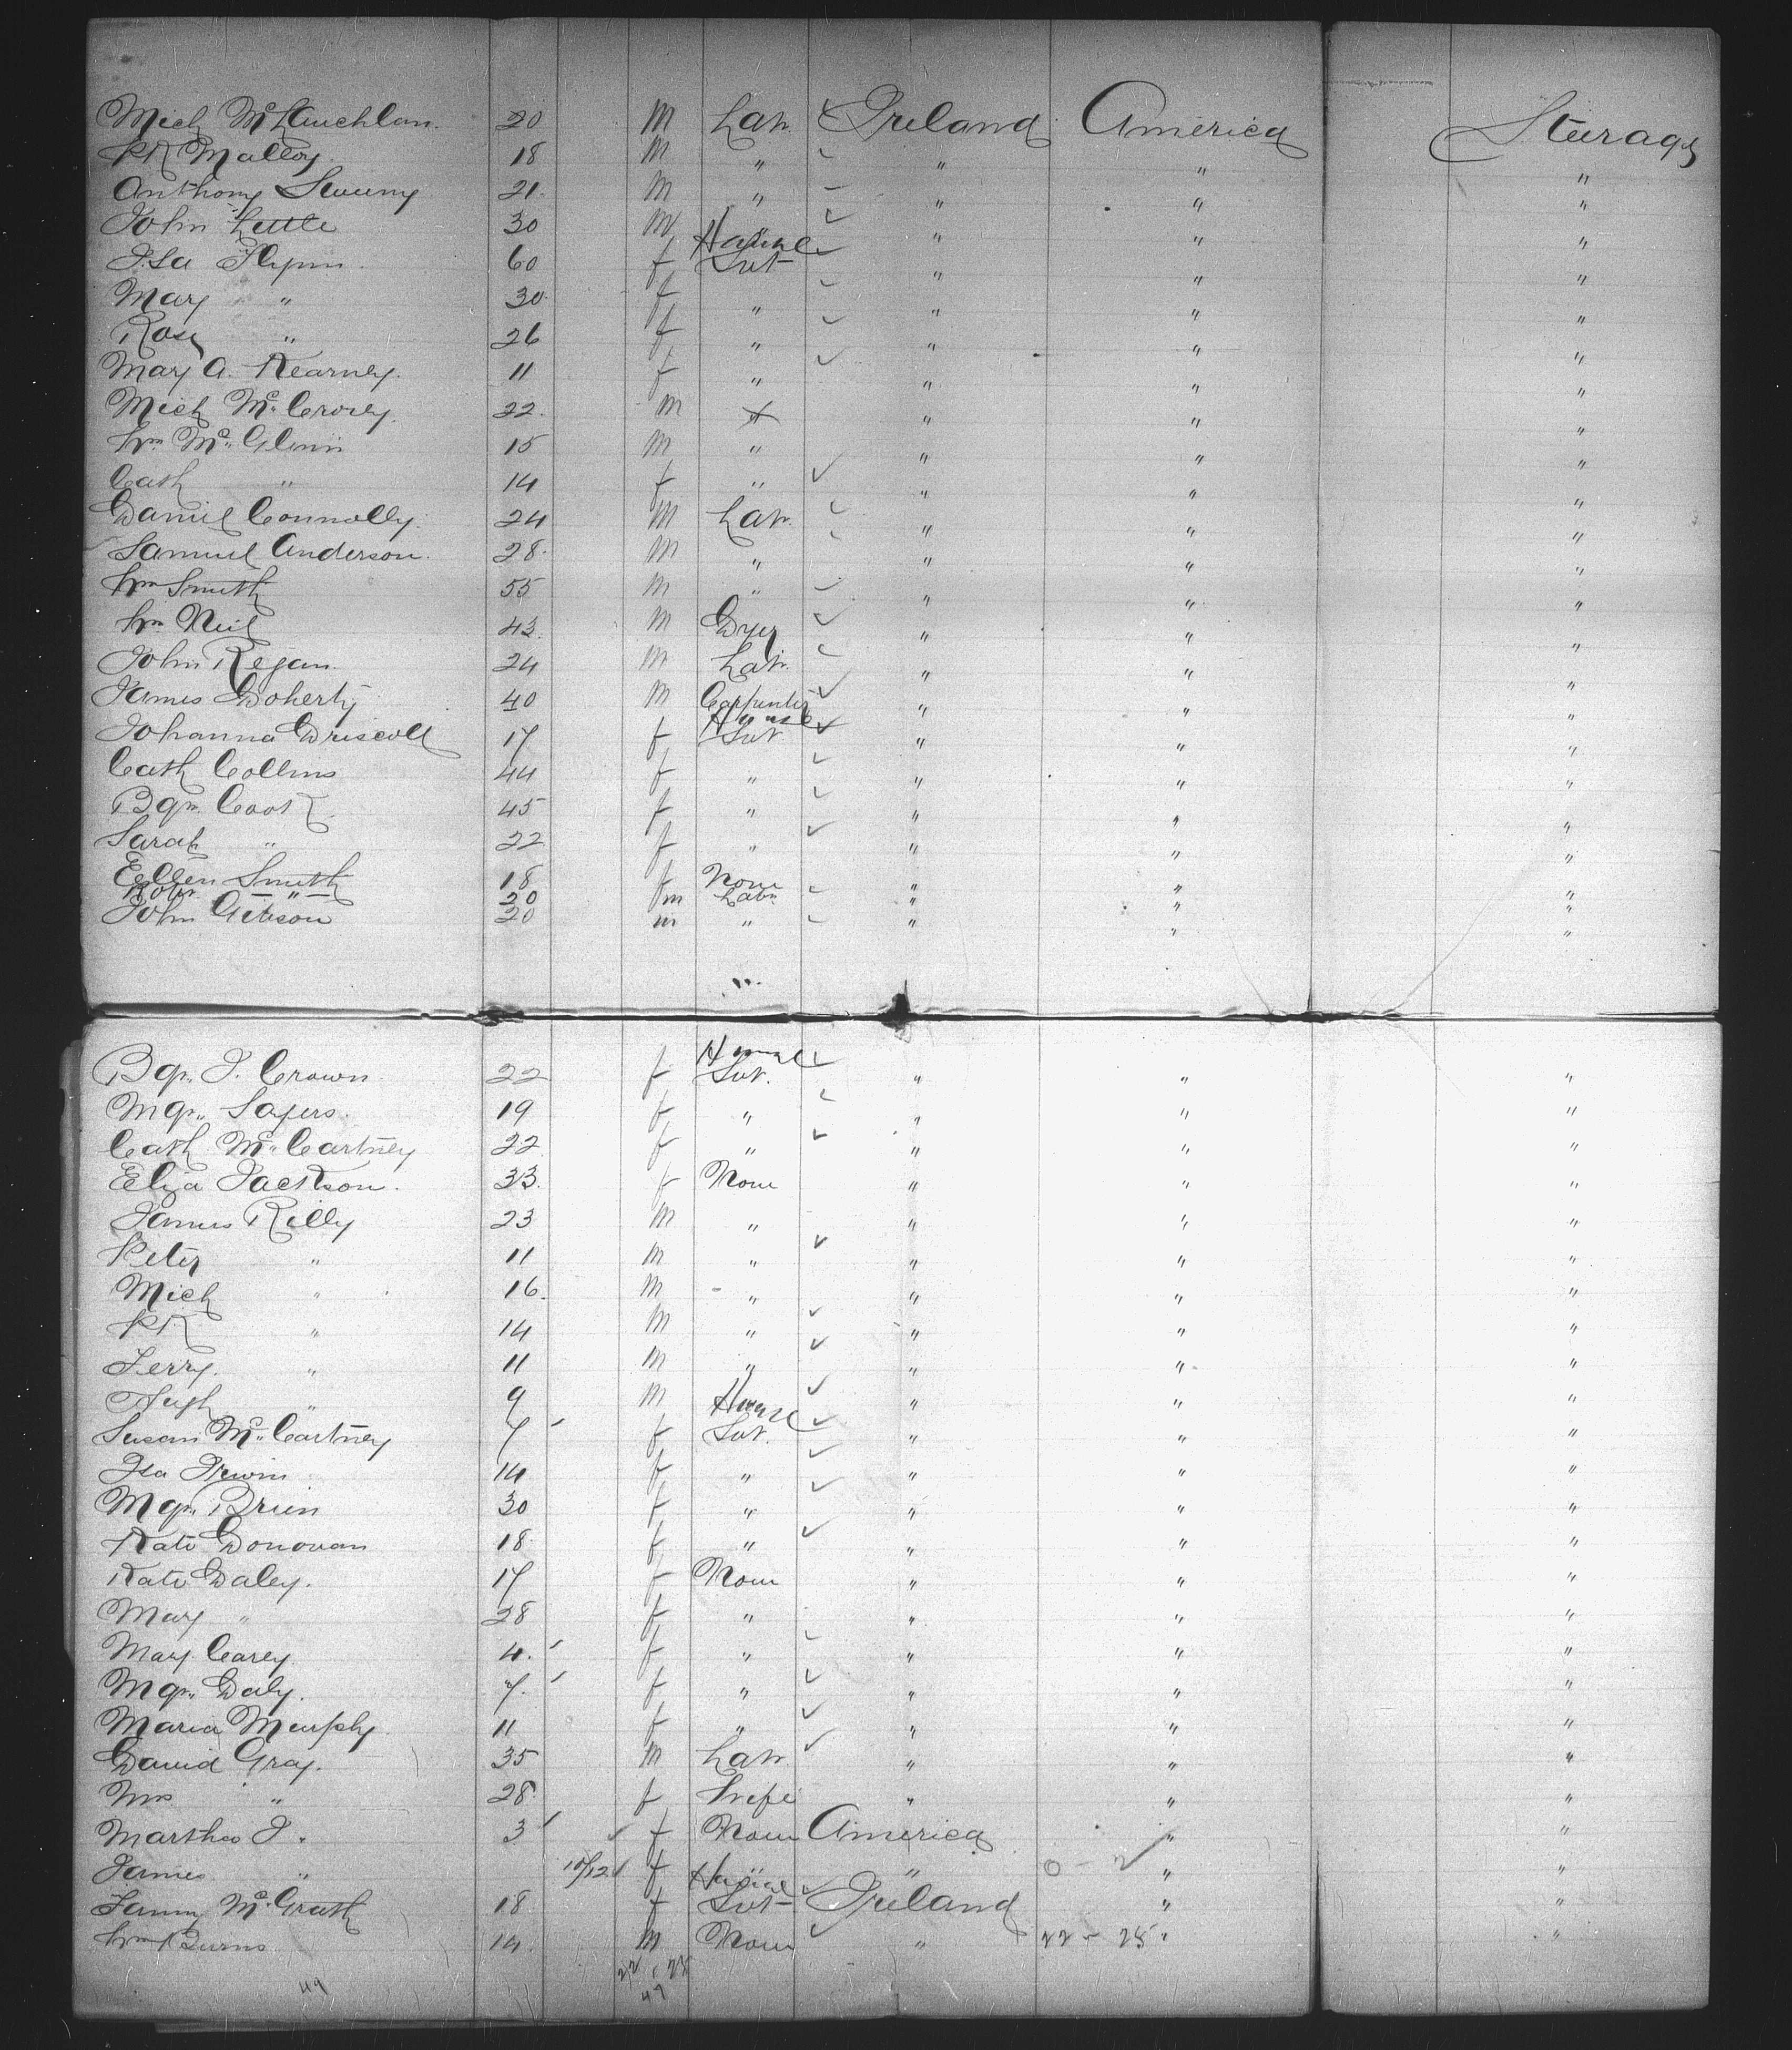 Mich McLauchlan. 20 M Lab. Ireland America Steerage
Pk Malloy. 18 M " " " "
Anthony Sweeny 21. M " " " "
John Little 30 M " " " "
House
Isa Flynn. 60 f Svt " " "
Mary " 30 f " " " "
Rose " 26 f " " " "
Mary A. Kearney. 11 f " " " "
Mich Mc. 22. M " " " "
Wm. Mc. Glinn 15 M " " " "
Cath " 14 f " " " "
Daniel Connolly. 24 M Lab. " " "
Samuel Anderson. 28. M " " " "
Wm Smith 55 M " " " "
Wm. Neil 43. M Dyer " " "
John Regan. 24 M Lab. " " "
James Doherty 40 M Carpenter " " "
House
Johanna Driscoll 17 f Svt " " "
Cath Collins 44 f " " " "
Bgt. Cook 45 f " " " "
Sarah " 22 f " " " "
Ellen Smith 18 f None " " "
Robt. " 20 m Labr. " " "
John Gibson 20 m " " " "
House
Bgt. J. Crown 22 f Svt. " " "
Mgt. Sayers. 19 f " " " "
Cath Mc. Cartney 22 f " " " "
Eliza Jackson. 33. f None " " "
James Rilly 23 M " " " "
Peter " 11 M " " " "
Mich " 16. M " " " "
Pk " 14 M " " " "
Terry. " 11 M " " " "
Hugh " 9 M " " " "
House
Susan Mc. Cartney 7 f Svt. " " "
Isa Irwin 14 f " " " "
Mgt. Brien 30 f " " " "
Kate Donovan 18. f " " " "
Kate Daley. 17 f None " " "
Mary " 28 f " " " "
Mary Carey 4. f " " " "
Mgt. Daly. 7. f " " " "
Maria Murphy. 11 f " " " "
David Gray. 35 M Lab. " " "
Mrs " 28. f Wife " " "
Martha J. " 3 f None America " "
James " 10/12 f " " 0 - 2 " "
House
Fanny Mc. Grath 18. f Svt Ireland " "
Wm Burns 14. M None " 22 - 25 " "
49 22 , 25
49